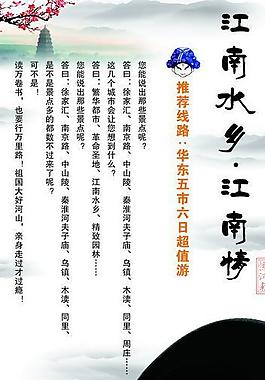 江南水乡·江南情
推荐线路：华东五市六日超值游
您能说出那些景点呢？
答曰：徐家汇、南京路、中山陵、秦淮河夫子庙、乌镇、木渎、同里、周庄……
这几个城市会让您想到什么？
答曰：繁华都市、革命圣地、江南水乡、精致园林……
您能说出那些景点呢？
答曰：徐家汇、南京路、中山陵、秦淮河夫子庙、乌镇、木渎、同里、
是不是景点多的都数不过来了呢？
可不是！
读万卷书，也要行万里路！祖国大好河山，亲身走过才过瘾！